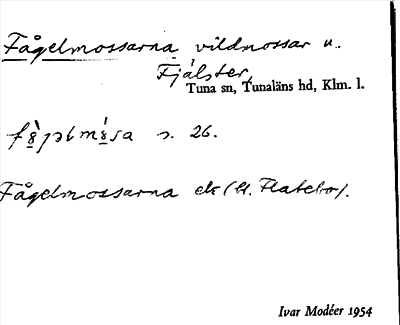 Fågelmossarna vildmossar u.
Fjälster,
Tuna sn, Tunaläns hd, Klm. l.
s. 26.
Fågelmossarna ek (U. Flatebo).
Ivar Modéer 1954